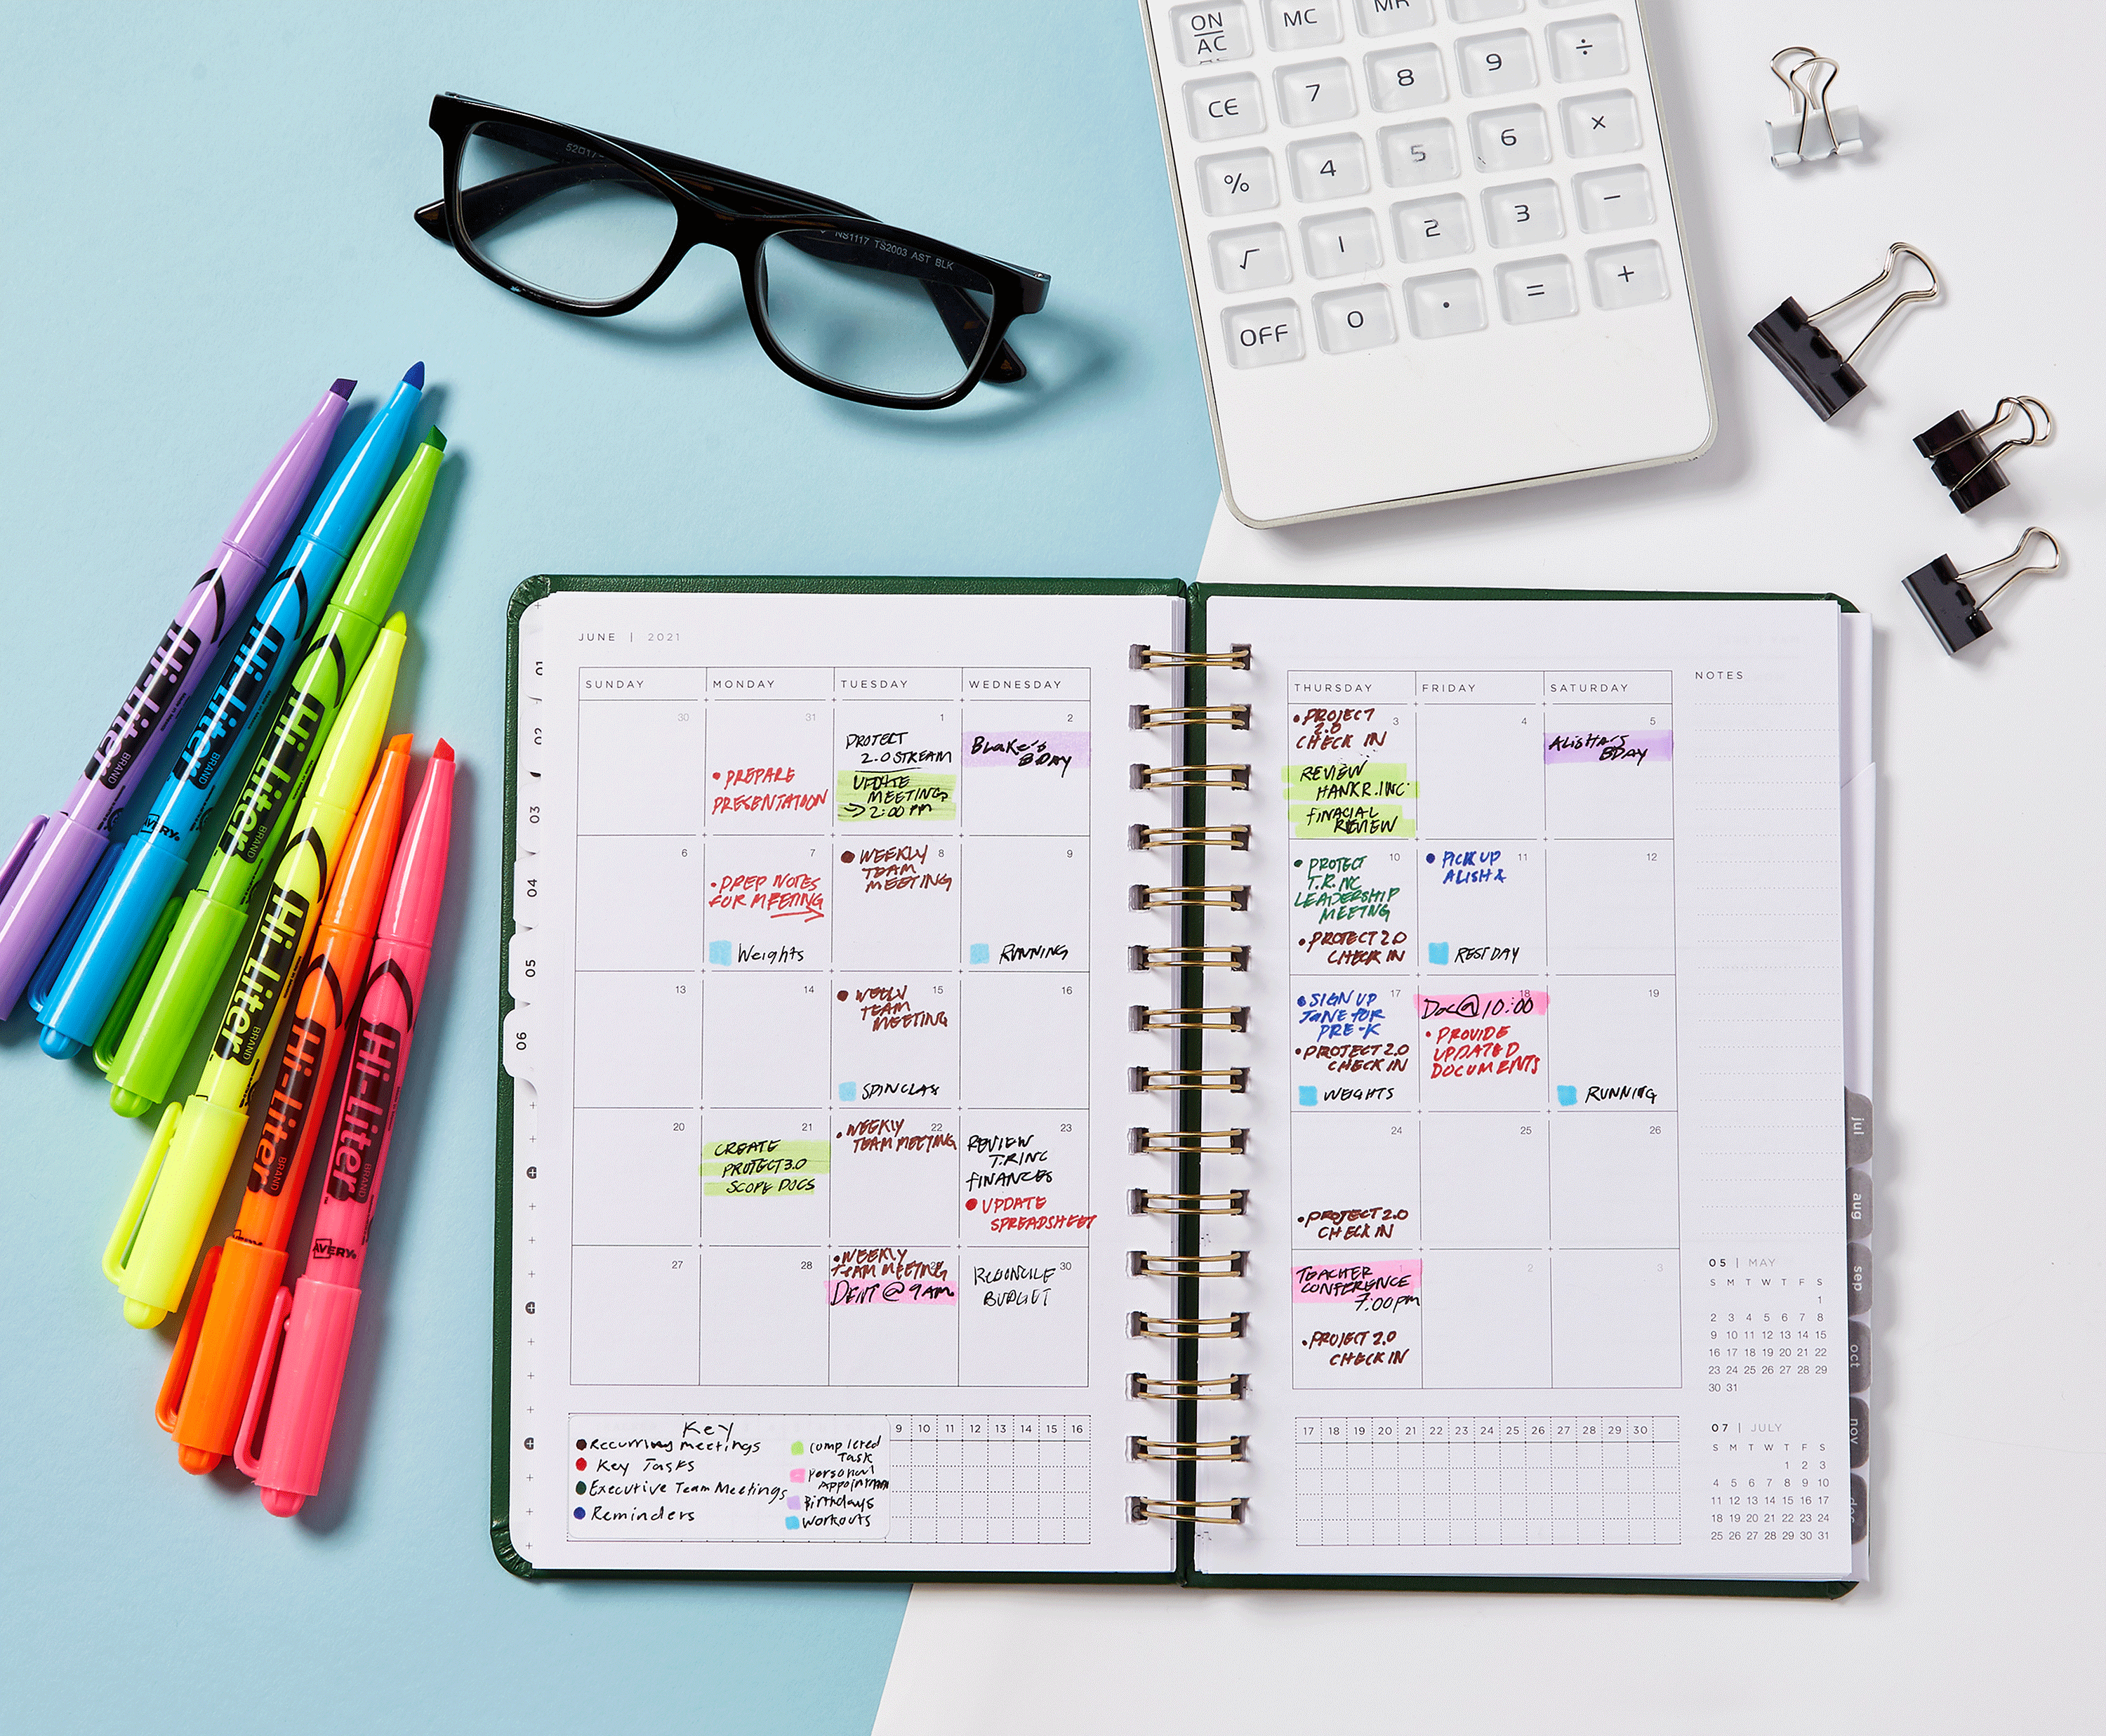 ON
AC
MC
MR
CE
7
8
9
÷
%
4
5
6
×
√
1
2
3
−
OFF
0
.
=
+
NS1117 TS2003 AST BLK
Hi-Liter
BRAND
AVERY
Hi-Liter
BRAND
AVERY
Hi-Liter
BRAND
Hi-Liter
BRAND
Hi-Liter
BRAND
AVERY
Hi-Liter
BRAND
AVERY
01
02
03
04
05
06
JUNE | 2021
SUNDAY MONDAY TUESDAY WEDNESDAY
THURSDAY FRIDAY SATURDAY
NOTES
30
31
• PREPARE
PRESENTATION
1
PROJECT
2.0 STREAM
UPDATE
MEETING
→ 2:00 PM
2
Blake's
BDAY
3
• PROJECT
2.0
CHECK IN
REVIEW
HANKR.INC
FINACIAL
REVIEW
4
5
Alisha's
BDAY
6
7
• PREP NOTES
FOR MEETING
Weights
8
• WEEKLY
TEAM
MEETING
9
RUNNING
10
• PROJECT
T.R.INC
LEADERSHIP
MEETING
• PROJECT 2.0
CHECK IN
11
• PICK UP
ALISHA
REST DAY
12
13
14
15
• WEEKLY
TEAM
MEETING
SPIN CLASS
16
17
• SIGN UP
JANE FOR
PRE-K
• PROJECT 2.0
CHECK IN
WEIGHTS
18
Doc@ 10:00
• PROVIDE
UPDATED
DOCUMENTS
19
RUNNING
20
21
CREATE
PROJECT 3.0
SCOPE DOCS
22
• WEEKLY
TEAM MEETING
23
REVIEW
T.R.INC
FINANCES
• UPDATE
SPREADSHEET
24
• PROJECT 2.0
CHECK IN
25
26
27
28
• WEEKLY
TEAM MEETING
DENT @ 9AM
30
RECONCILE
BUDGET
1
TEACHER
CONFERENCE
7:00pm
• PROJECT 2.0
CHECK IN
2
3
Key
• Recurring meetings
• Key Tasks
• Executive Team Meetings
• Reminders
completed
Task
personal
Birthdays
workouts
9 10 11 12 13 14 15 16
17 18 19 20 21 22 23 24 25 26 27 28 29 30
05 | MAY
S M T W T F S
1
2 3 4 5 6 7 8
9 10 11 12 13 14 15
16 17 18 19 20 21 22
23 24 25 26 27 28 29
30 31
07 | JULY
S M T W T F S
1 2 3
4 5 6 7 8 9 10
11 12 13 14 15 16 17
18 19 20 21 22 23 24
25 26 27 28 29 30 31
jul
aug
sep
oct
nov
dec